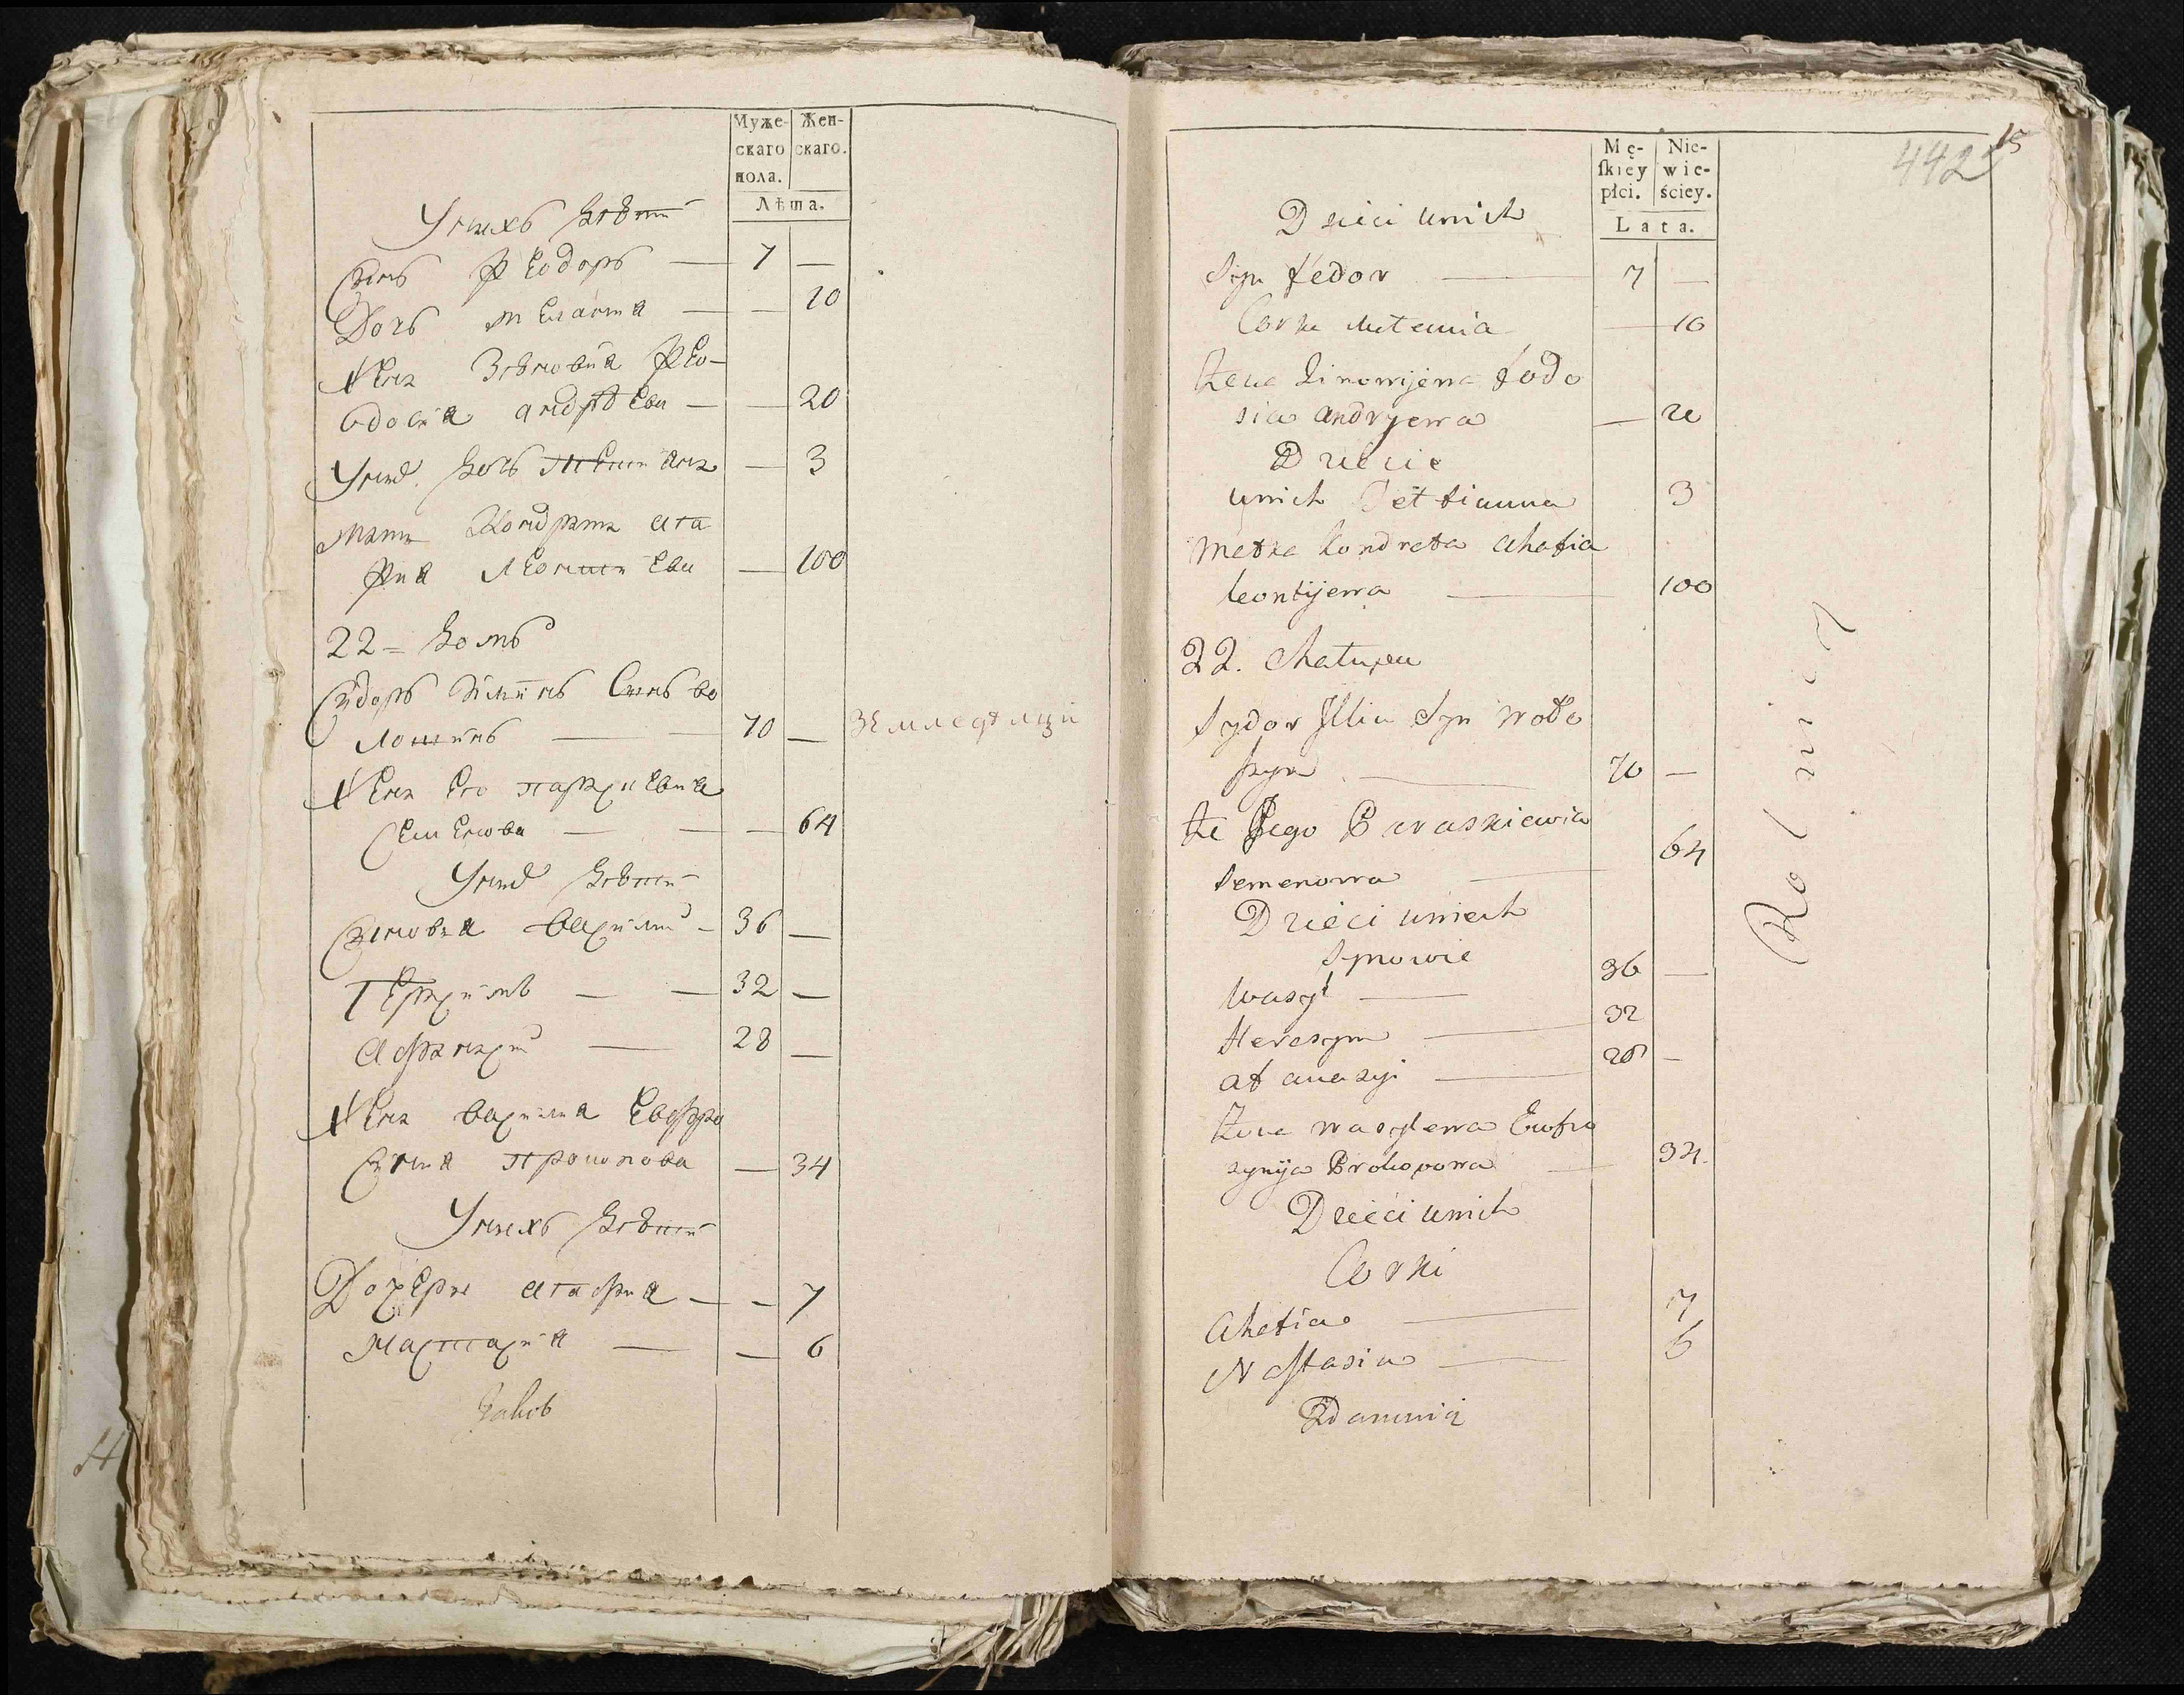 Муже-
скаго
пола.
Жен-
скаго.
Лѣта.
Унихъ дѣти
Сынъ Ѳеодоръ — 7 —
Дочь Мелания — — 10
Жена Зѣновия Ѳео-
одосия андрѣева — — 20
Унихъ дочь татияна — 3
мать Кондрата ага
фия Леонтиева — 100
22 - домъ
Сидоръ Илиинъ Сынъ во
лошинъ — — 70 — Земледѣлцы
Жена Его параскевия
Семенова — — — 64
Унихъ дѣти
Сыновья василий - 36 —
Герасимъ — — 32 —
Афанасий — 28 —
Жена василия Евфро
синия прокопова — 34
Унихъ дѣти
Дочери агафия — — 7
Настасия — — 6
Mę-
ſkiey
płci.
Nie-
wie-
ściey.
Lata.
442
15
Dzieci unich
Syn Fedor — 7 —
Corka Melania — 10
Zona Zinowijewa Fodo
sia Andryewa — 20
Dziecie
unich Tettianna 3
Matka Kondrata Ahafia
Leontijewa — 100
22. Chałupa
Sydor Illin Syn Woło
szyn — 70 —
Żo Jego Paraskiewia
Semenowa — 64
Dzieci unich
Synowie
Wasyl — 36 —
Herasym — 32
Atanazyi — 28 —
Zona Wasylewa Eufro
zynija Prokopowa — 34.
Dzieci unich
Corki
Ahafia — 7
Nastasia — 6
Rolnicy